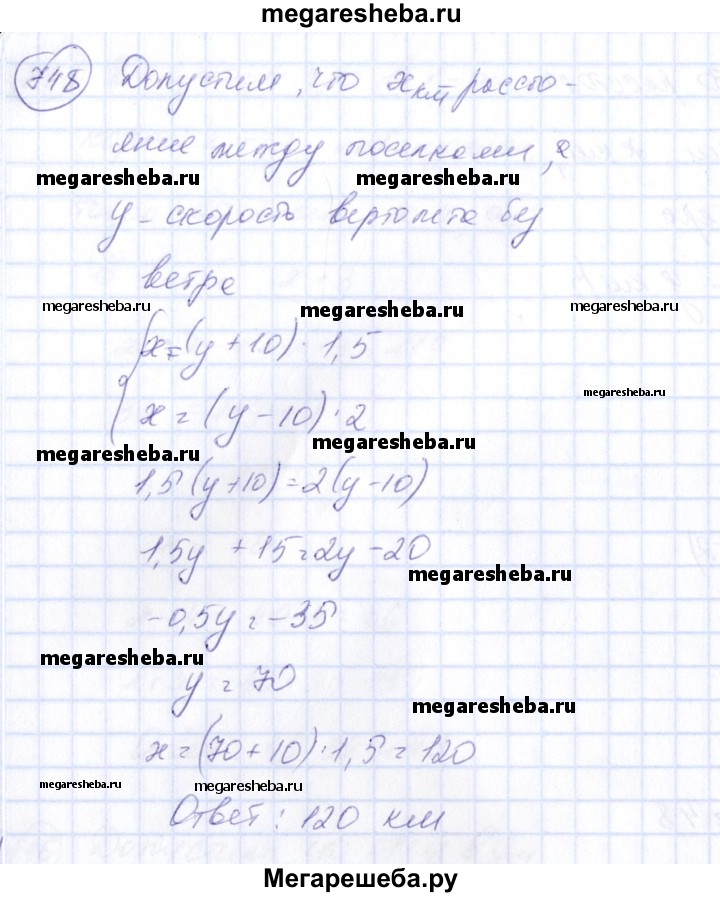 megaresheba.ru
748 Допустим, что x км рассто-
яние между поселками, а
megaresheba.ru megaresheba.ru
y - скорость вертолета без
ветра
megaresheba.ru megaresheba.ru megaresheba.ru
x = (y + 10) · 1,5
megaresheba.ru
x = (y - 10) · 2
megaresheba.ru megaresheba.ru
1,5 (y+10) = 2(y-10)
1,5y + 15 = 2y - 20
megaresheba.ru
-0,5y = -35
megaresheba.ru
y = 70
megaresheba.ru
x = (70 + 10) · 1,5 = 120
megaresheba.ru megaresheba.ru
Ответ: 120 км
Мегарешеба.ру